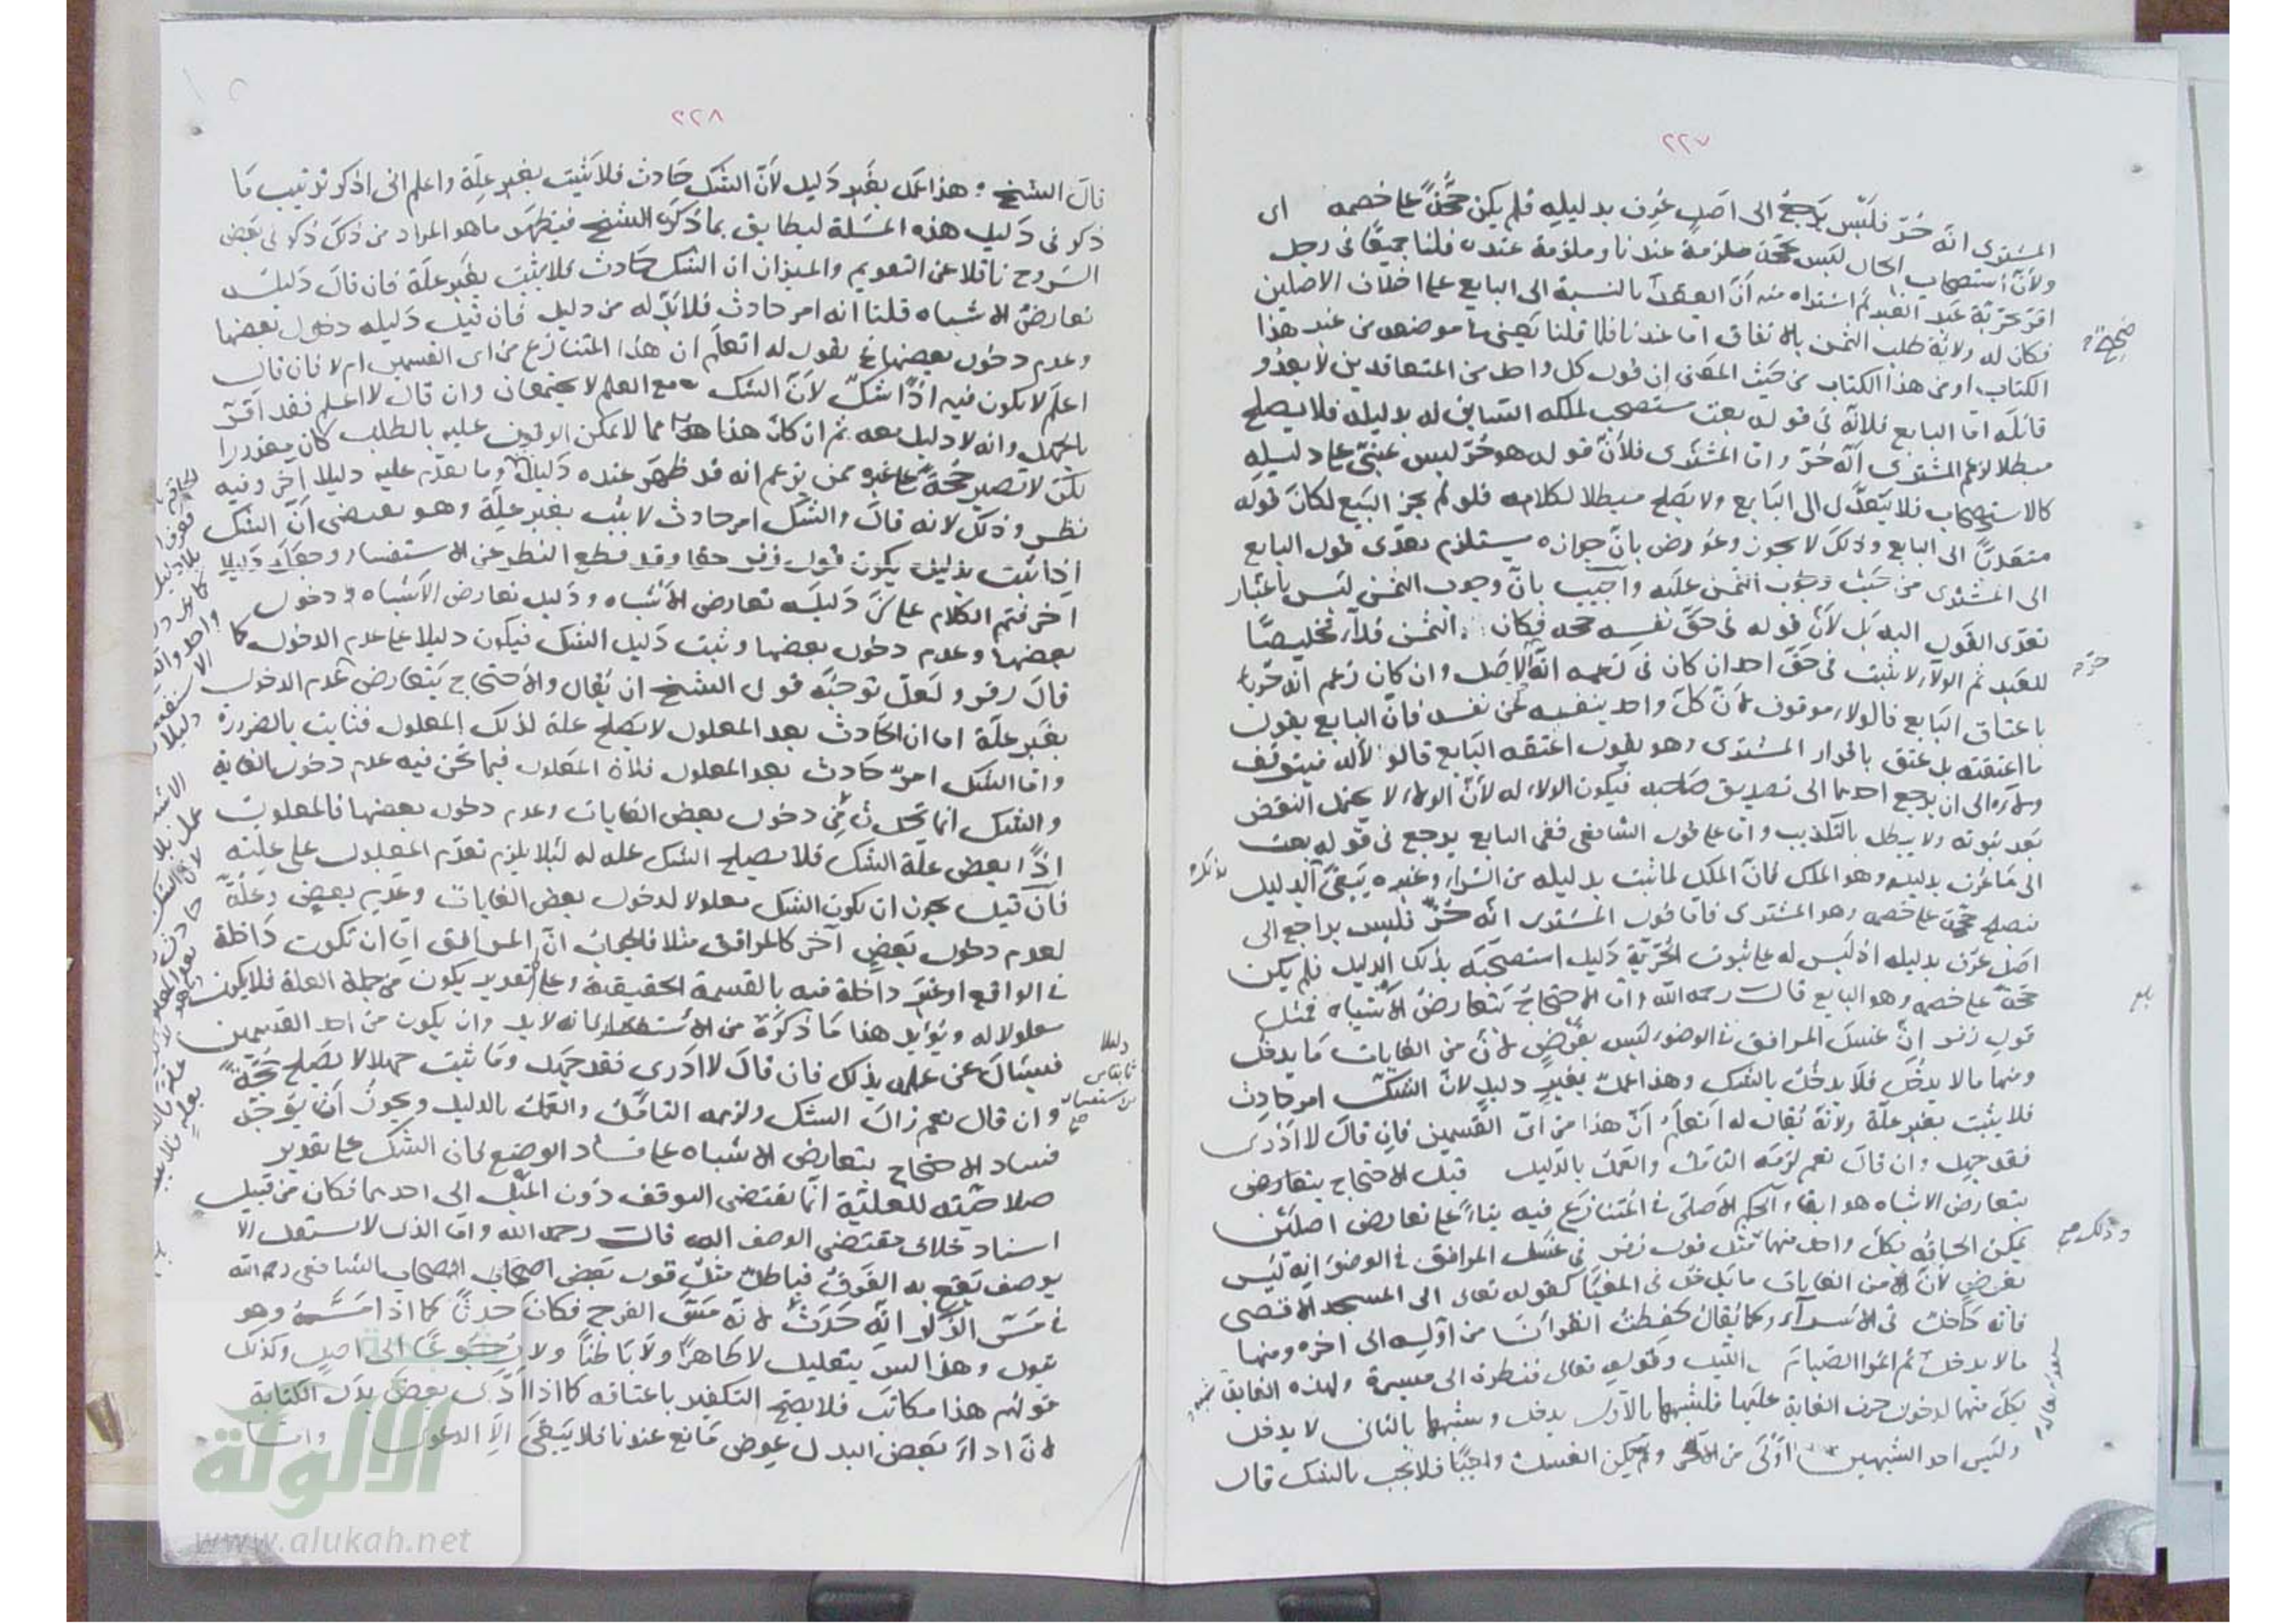 ٢٢٧
المشترى انه حُرّ فليس يرجع الى اصل عُرِف بدليله فلم يكن حجّةً على خصمه اى
ولأنّ استصحاب الحال ليس بحجّة ملزمة عندنا وملزمة عنده قلنا جميعًا فى رجل
اقرّ بحرّية عبد الغير ثم اشتراه منه أنّ العقد بالنسبة الى البايع على اختلاف الاصلين
فكان له ولاية طلب الثمن بالاتفاق اما عندنا فلما قلنا يعنى فى موضعه من عند هذا
الكتاب او من هذا الكتاب من حيث المعنى ان قول كل واحد من المتعاقدين لا يعدو
قائله اما البايع فلانه فى قوله بعت مستصحب لملكه السابق له بدليله فلا يصلح
مبطلا لزعم المشترى أنه حُرّ واما المشترى فلأن قوله هو حُرّ ليس مبنى على دليله
كالاستصحاب فلا يتعدّى الى البايع ولا يصلح مبطلا لكلامه فلو لم يجز البيع لكان قوله
متعديًا الى البايع وذلك لا يجوز وعورض بانّ جوازه يستلزم تعدّى قول البايع
الى المشترى من حيث وجوب الثمن عليه واجيب بانّ وجوب الثمن ليس باعتبار
تعدّى القول اليه بل لأن قوله فى حقّ نفسه حجة فكان الثمن فداءً تخليصًا
للعبد ثم الولاء لا يثبت فى حقّ احد ان كان فى زعمه انه الاصل وان كان زعم انه حُرّ
باعتاق البايع فالولاء موقوف لانّ كلّ واحد ينفيه عن نفسه فانّ البايع يقول
ما اعتقته بل عتق باقرار المشترى وهو يقول اعتقه البايع فالولاء له فيتوقف
ولاؤه الى ان يرجع احدهما الى تصديق صاحبه فيكون الولاء له لأنّ الولاء لا يحتمل النقض
بعد ثبوته ولا يبطل بالتكذيب واما على قول الشافعى ففى البايع يرجع فى قوله بعت
الى ما عرف بدليله وهو الملك فانّ الملك لما ثبت بدليله من الشراء وغيره يبقى بالدليل
فيصلح حجّة على خصمه وهو المشترى فانّ قول المشترى انه حُرّ فليس براجع الى
اصل عرف بدليله اذ ليس له على ثبوت الحرّية دليل استصحبه بذلك الدليل فلم يكن
حجّة على خصمه وهو البايع قال رحمه الله واما الاحتجاج بتعارض الاشياه فمثل
قول زفر انّ غسل المرافق فى الوضوء ليس بفرض لانّ من الغايات ما يدخل
ومنها ما لا يدخل فلا يدخل بالشك وهذا عمل بغير دليل لانّ الشك امر حادث
فلا يثبت بغير علّة ولانّه يقال له اتعلم أنّ هذا من اىّ القسمين فان قال لا ادرى
فقد جهل وان قال نعم لزمه التأمّل والعمل بالدليل قيل الاحتجاج بتعارض
بتعارض الاشباه هو ابقاء الحكم الاصلى فى المتنازع فيه بناءً على تعارض اصلين
يمكن الحاقه بكلّ واحد منهما مثل قول زفر فى غسل المرافق فى الوضوء انه ليس
بفرض لأنّ من الغايات ما يدخل فى المغيّا كقوله تعالى الى المسجد الاقصى
فانه داخل فى الاسراء وكما يقال حفظت القرآن من اوّله الى اخره ومنها
ما لا يدخل ثم اتمّوا الصيام الى الليل وقوله تعالى فنظرة الى ميسرة ولهذه الغاية شبه
بكلّ منهما لدخول حرف الغاية عليها فلشبهها بالاوّل يدخل وشبهها بالثانى لا يدخل
وليس احد الشبهين اَوْلى من الآخر ولم يكن الغسل واجبًا فلا يجب بالشك قال
بذلك
وذلك صح
٢٢٨
قال الشيخ : هذا عمل بغير دليل لأنّ الشك حَادث فلا يثبت بغير علّة واعلم انى اذكر ترتيب مَا
ذكر فى دَليل هذه المسئلة ليطابق بما ذكره الشيخ فيظهر ما هو المراد من ذلك ذكر فى بعض
الشروح ناقلا عن التقويم والميزان ان الشك حَادث فلا يثبت بغير علّة فان قال دَليله
تعارض الاشباه قلنا انه امر حادث فلا بدّ له من دليل فان قيل دَليله دخول بعضها
وعدم دخول بعضها يقول له اتعلم ان هذا المتنازع من اى القسمين ام لا فان قال
اعلم لا يكون فيه اذًا شكّ لأنّ الشك مع العلم لا يجتمعان وان قال لا اعلم فقد اقرّ
بالجهل وانه لا دليل معه ثم ان كان هذا مما لا يمكن الوقوف عليه بالطلب كان معذورا
لكن لا تصير حُجّةً على غيره ممن يزعم انه قد ظهر عنده دَليل وما تقدّم عليه دليلا آخر وفيه
نظر وذلك لانه قال والشك امر حادث لا يثبت بغير علّة وهو يقتضى أنّ الشك
اذا ثبت بدليل يكون قول زفر حقا وقد قطع النظر عن الاستفسار وجعله دَليلا
اخر فتمّ الكلام على أنّ دَليله تعارض الأشباه ودَليل تعارض الاشباه دخول
بعضها وعدم دخول بعضها وثبت دَليل الشك فيكون دليلا على عدم الدخول كما
قال زفر ولعلّ توجيه قول الشيخ ان يقال والاحتجاج بتعارض عدم الدخول
بغير علّة اما ان الحَادث بعد المعلول لا يصلح علة لذلك المعلول فثابت بالضرورة
وامّا الشك امرٌ حَادث بعد المعلول فلانّ المعلول فيما نحن فيه عدم دخول الغاية
والشك انما يحدث من دخول بعض الغايات وعدم دخول بعضها فالمعلول
اذًا بعض علّة الشك فلا يصلح الشك علة له لئلا يلزم تقدّم المعلول على علّته
فان قيل يجوز ان يكون الشك معلولا لدخول بعض الغايات وعدم بعض وعلّة
لعدم دخول بعض آخر كالمرافق مثلا فالجواب انّ المرافق امّا ان تكون دَاخلة
فى الواقع او غير داخلة فيه بالقسمة الحقيقية وعلى تقدير يكون من جملة العلة فلا يكون
معلولا له ويؤيد هذا مَا ذكره من الاستفسار لانه لابد وان يكون من احد القسمين
فيسأل عن علمه بذلك فان قال لا ادرى فقد جهل ومَا ثبت جهلا لا يصلح حجّةً
وان قال نعم زال الشك ولزمه التامّل والعمل بالدليل ويجوز أن يوجّه
فساد الاحتجاج بتعارض الاشباه على فسَاد الوضع فان الشك على تقدير
صلاحيّته للعلّية انّما يقتضى التوقف دون الميل الى احدهما فكان من قبيل
اسناد خلاف مقتضى الوصف اليه قال رحمه الله وامّا الذى لا يستقل الا
بوصف يقع به الفرق فباطلٌ مثل قول بعض اصحاب الشافعى رحمه الله
فى مَسّ الذكر انّه حَدَث لانّه مَسّ الفرج فكان حدثًا كما اذا مَسّه وهو
يبول وهذا ليس بتعليل لا ظاهرًا ولا بَاطنًا ولا رُجُوعًا الى اصل وكذلك
قولهم هذا مكاتب فلا يصحّ التكفير باعتاقه كما اذا ادّى بعض بدل الكتابة
لانّ اداءَ بعض البدل عوض مَانع عندنا فلا يبقى الا الدعوى
الألوكة
www.alukah.net